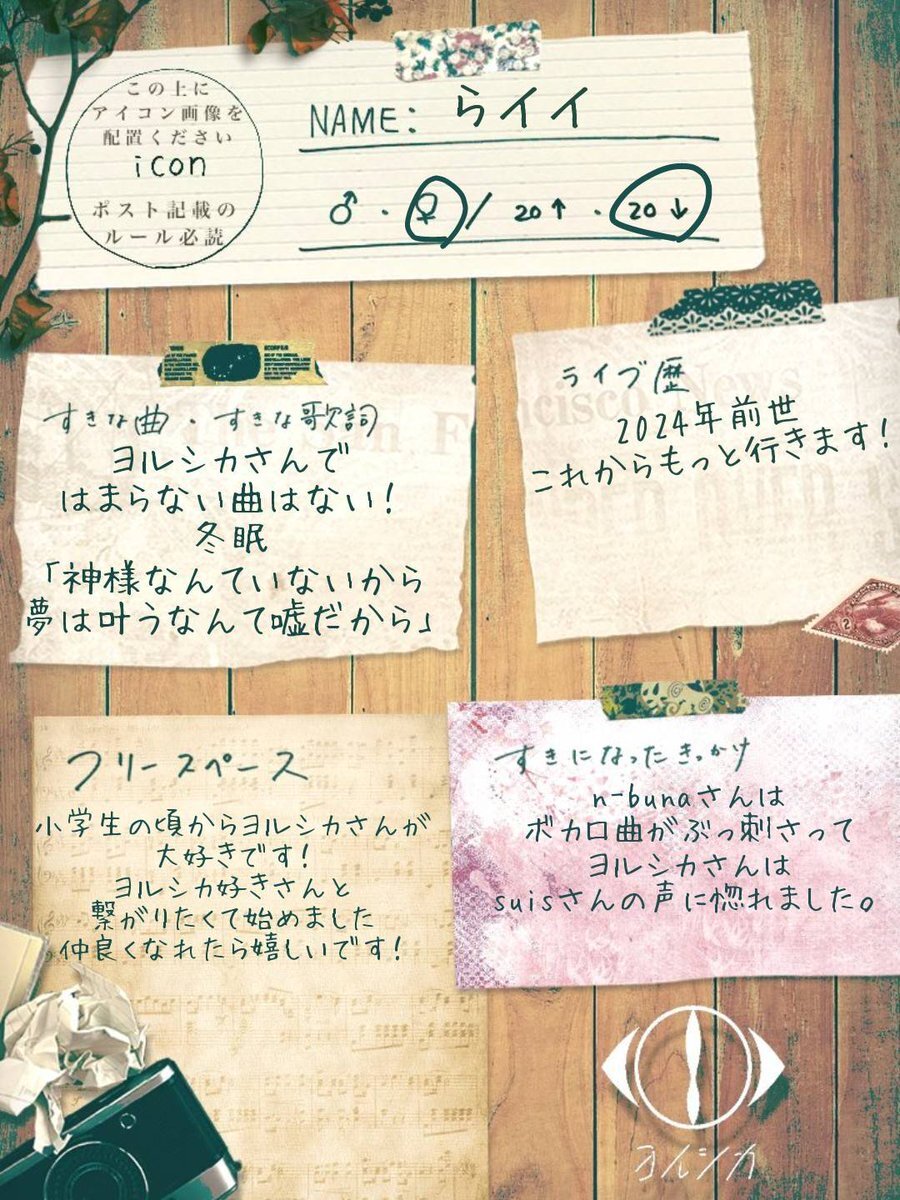 この上に
アイコン画像を
配置ください
icon
ポスト記載の
ルール必読
NAME: らイイ
♂ ・ ♀ / 20↑ ・ 20↓
すきな曲 ・ すきな歌詞
ヨルシカさんで
はまらない曲はない!
冬眠
「神様なんていないから
夢は叶うなんて嘘だから」
ライブ歴
2024年前世
これからもっと行きます!
フリースペース
小学生の頃からヨルシカさんが
大好きです!
ヨルシカ好きさんと
繋がりたくて始めました
仲良くなれたら嬉しいです!
すきになったきっかけ
n-bunaさんは
ボカロ曲がぶっ刺さって
ヨルシカさんは
suisさんの声に惚れました。
2
ヨルシカ